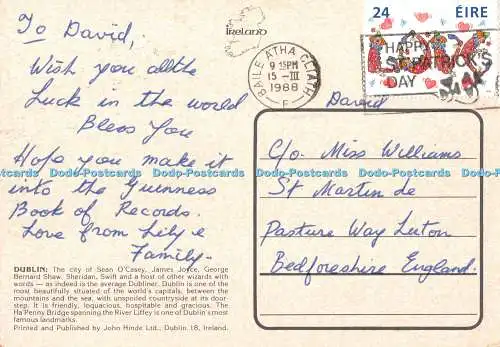 To David,
Wish you all the
Luck in the world
Bless You
Hope you make it
into the Guinness
Book of Records.
Love from Lily &
Family.
DUBLIN: The city of Sean O'Casey, James Joyce, George
Bernard Shaw, Sheridan, Swift and a host of other wizards with
words — as indeed is the average Dubliner. Dublin is one of the
most beautifully situated of the world's capitals, between the
mountains and the sea, with unspoiled countryside at its door-
step. It is friendly, loquacious, hospitable and gracious. The
Ha'Penny Bridge spanning the River Liffey is one of Dublin's most
famous landmarks.
Printed and Published by John Hinde Ltd., Dublin 18, Ireland.
Ireland
BAILE ÁTHA CLIATH
9 15PM
15 -III
1988
F
24 ÉIRE
HAPPY
ST. PATRICK'S
DAY
David
C/o Miss Williams
St Martin de
Pasture Way Luton
Bedforeshire England.
Dodo-Postcards Dodo-Postcards Dodo-Postcards Dodo-Postcards Dodo-Postcards